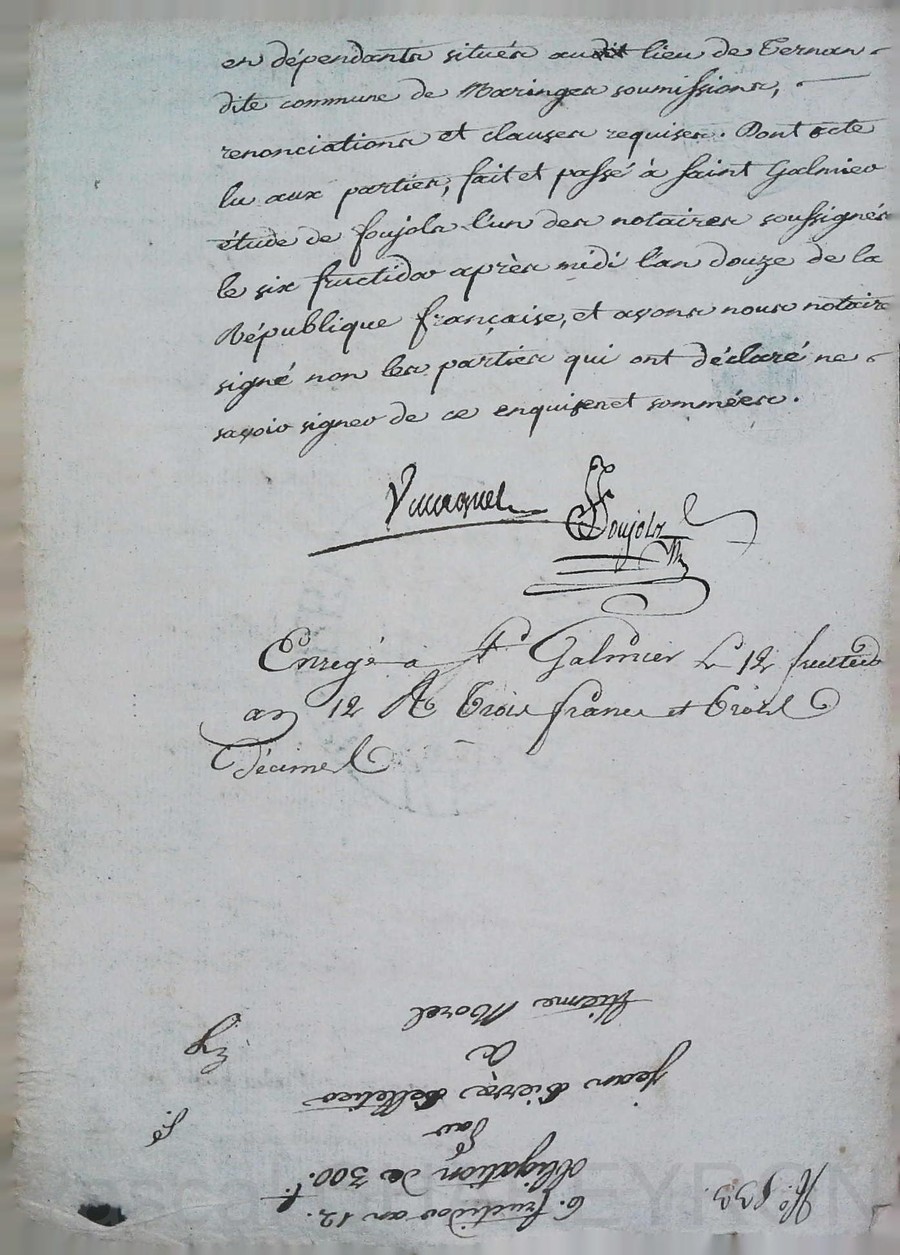 en dépendants situés audit lieu de Ternan
dite commune de Maringes soumissions,
renonciations et clauses requises. Dont acte
lu aux parties, fait et passé à saint Galmier
étude de foujols l'un des notaires soussignés
le six fructidor après midi l'an douze de la
République française, et avons nous notaire
signé non les parties qui ont déclaré ne
savoir signer de ce enquises et sommées.
Foujols
Enregé à St Galmier Le 12 fructid
an 12 R trois francs et trois
décimes
6. fructidor an 12.
N.º 833.
obligation de 300.f
Par
jean Pierre Pelletier
A
Etienne Morel